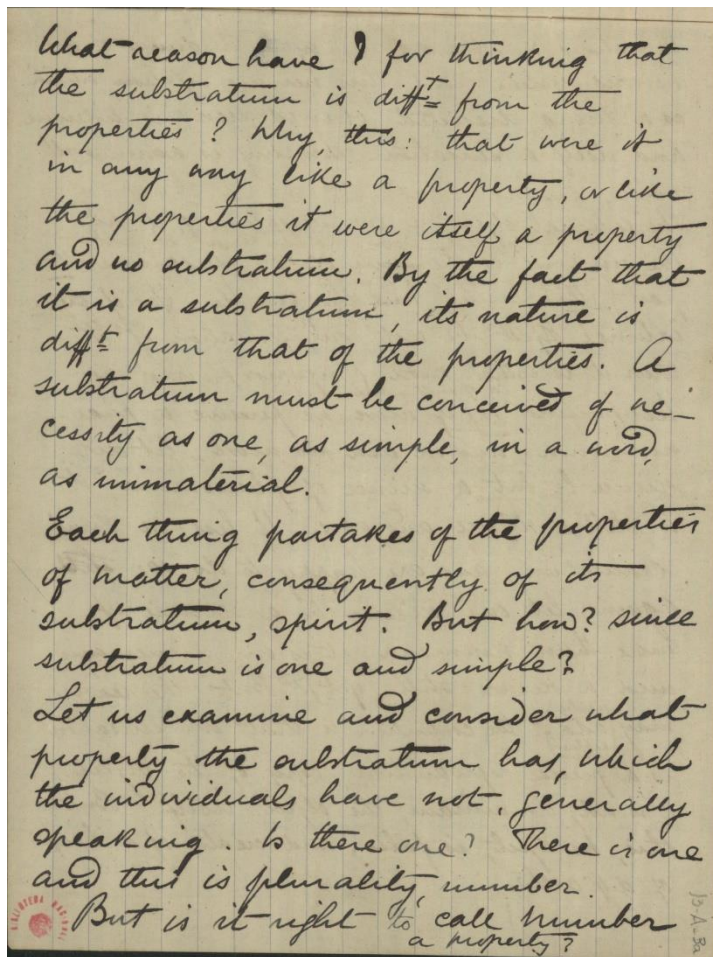 What reason have I for thinking that
the substratum is diff^t from the
properties? Why, this: that were it
in any way like a property, or like
the properties it were itself a property
and no substratum. By the fact that
it is a substratum, its nature is
diff^t from that of the properties. A
substratum must be conceived of ne-
cessity as one, as simple, in a word,
as immaterial.
Each thing partakes of the properties
of matter, consequently of its
substratum, spirit. But how? since
substratum is one and simple?
Let us examine and consider what
property the substratum has, which
the individuals have not, generally
speaking. Is there one? There is one
and this is plurality, number.
But is it right to call number
a property?
BIBLIOTECA NACIONAL